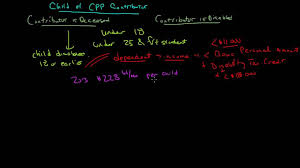 Child of CPP Contributor
Contributor is Deceased
Contributor is Disabled
under 18
under 25 & f/t student
child disabled
18 or earlier
dependent income <
Basic Personal Amount
+ Disability Tax Credit
2013 $228 per child